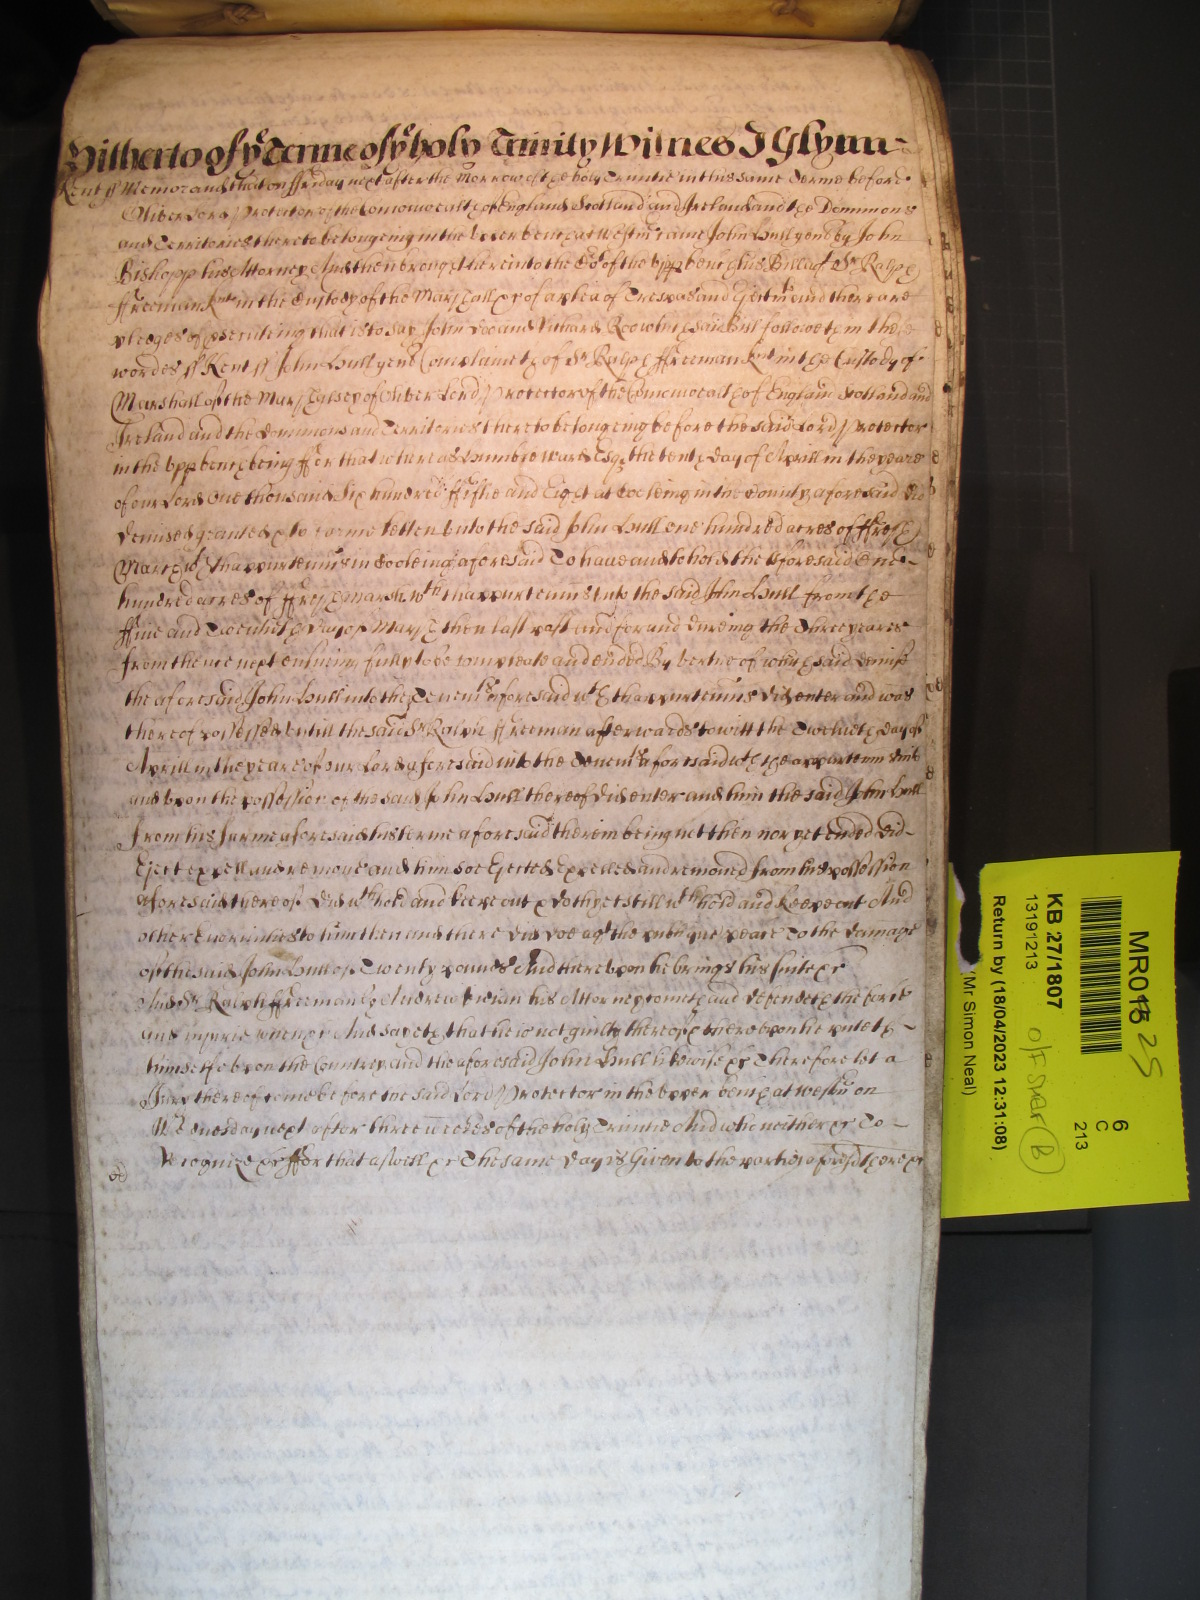 Hitherto of yᵉ Terme of yᵉ holy Trinity Witnes J Glynn
Kent ss Memorand that on ffriday next after the Morrow of the holy Trinitie in this same Terme before
Oliver Lord Protector of the Comonwealth of England Scotland and Ireland and the Dominions
and Territories thereto belongeing in the upper bench at Westmʳ came John Hull gent by John
Bishopp his Attorney And then brought here into the Coʳᵗ of the upp bench his Bill agᵗ Sʳ Ralph
ffreeman Knᵗ in the Custody of the Marshall &c of a plea of Trespas and Ejectmᵗ and there are
pledges of prosecuting that is to say John Doe and Richard Roe which said Bill followeth in these
wordes ss Kent ss John Hull gent Complaineth of Sʳ Ralph ffreeman Knᵗ in the Custody of
Marshall of the Marshalsey of Oliver Lord Protector of the Comonwealth of England Scotland and
Ireland and the Dominions and Territories thereto belongeing before the said Lord Protector
in the upp bench being ffor that whereas Humfry Ward Esqʳ the tenth day of Aprill in the yeare
of our Lord One thousand Six hundred ffiftie and Eight at in the County aforesaid did
demised granted & to farme letten unto the said John Hull one hundred acres of ffresh
Marsh wᵗʰ thappurtenᵃⁿᶜes in aforesaid To have and to hold the aforesaid One
hundred acres of ffresh marsh wᵗʰ thappurtenᵃⁿᶜes unto the said John Hull from the
ffive and Twentieth day of March then last past and for and dureing the Three yeares
from thence next ensuing fully to be compleate and ended By vertue of which said demise
the aforesaid John Hull into the Tenemᵗˢ aforesaid wᵗʰ thappurtenᵃⁿᶜes did enter and was
thereof possessed untill the said Sʳ Ralph ffreeman afterwards to witt the Twelveth day of
Aprill in the yeare of our Lord aforesaid into the Tenemᵗˢ aforesaid wᵗʰ the appurtenn
and upon the possession of the said John Hull thereof did enter and him the said John Hull
from his farme aforesaid his terme aforesaid therein being not then nor yet ended did
Eject expell and remove and him soe Ejected Expelled and removed from his possession
aforesaid thereof did wᵗʰhold and keepe out & doth yet still wᵗʰhold and keepe out And
other Enormities to him then and there did doe agᵗ the publique peace To the damage
of the said John Hull of Twenty pounds And thereupon he brings his suite &c
And Sʳ Ralph ffreeman by Andrew his Attorney cometh and defendeth the force
and injurie when &c And sayeth that he is not guilty thereof & thereupon he putteth
himselfe upon the Countrey and the aforesaid John Hull likewise &c Therefore let a
Jury thereof come before the said Lord Protector in the upper bench at Westmʳ on
Wednesday next after three weekes of the holy Trinitie And who neither &c To
Recognize &c ffor that aswell &c The same day is Given to the parties aforesd there &c
MR01 25
6
C
213
KB 27/1807
13191213
O/F Star (B)
Return by (18/04/2023 12:31:08)
(Mr Simon Neal)